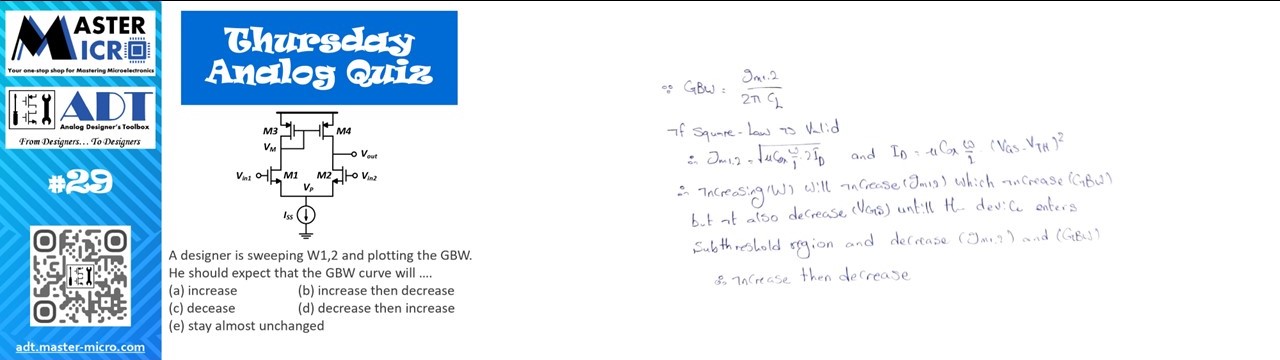 MASTER
MICRO
Your one-stop shop for Mastering Microelectronics
ADT
Analog Designer's Toolbox
From Designers... To Designers
#29
adt.master-micro.com
Thursday
Analog Quiz
M3
M4
VM
Vout
Vin1
M1
M2
Vin2
VP
ISS
A designer is sweeping W1,2 and plotting the GBW.
He should expect that the GBW curve will ....
(a) increase (b) increase then decrease
(c) decease (d) decrease then increase
(e) stay almost unchanged
∵ GBW = gm1,2 / 2π CL
If Square-Law is Valid
∴ gm1,2 = √(μCox W/L · 2ID) and ID = μCox W/2 · (VGS-VTH)²
∴ increasing (W) will increase (gm1,2) which increase (GBW)
but it also decrease (VGS) untill the device enters
Subthreshold region and decrease (gm1,2) and (GBW)
∴ increase then decrease